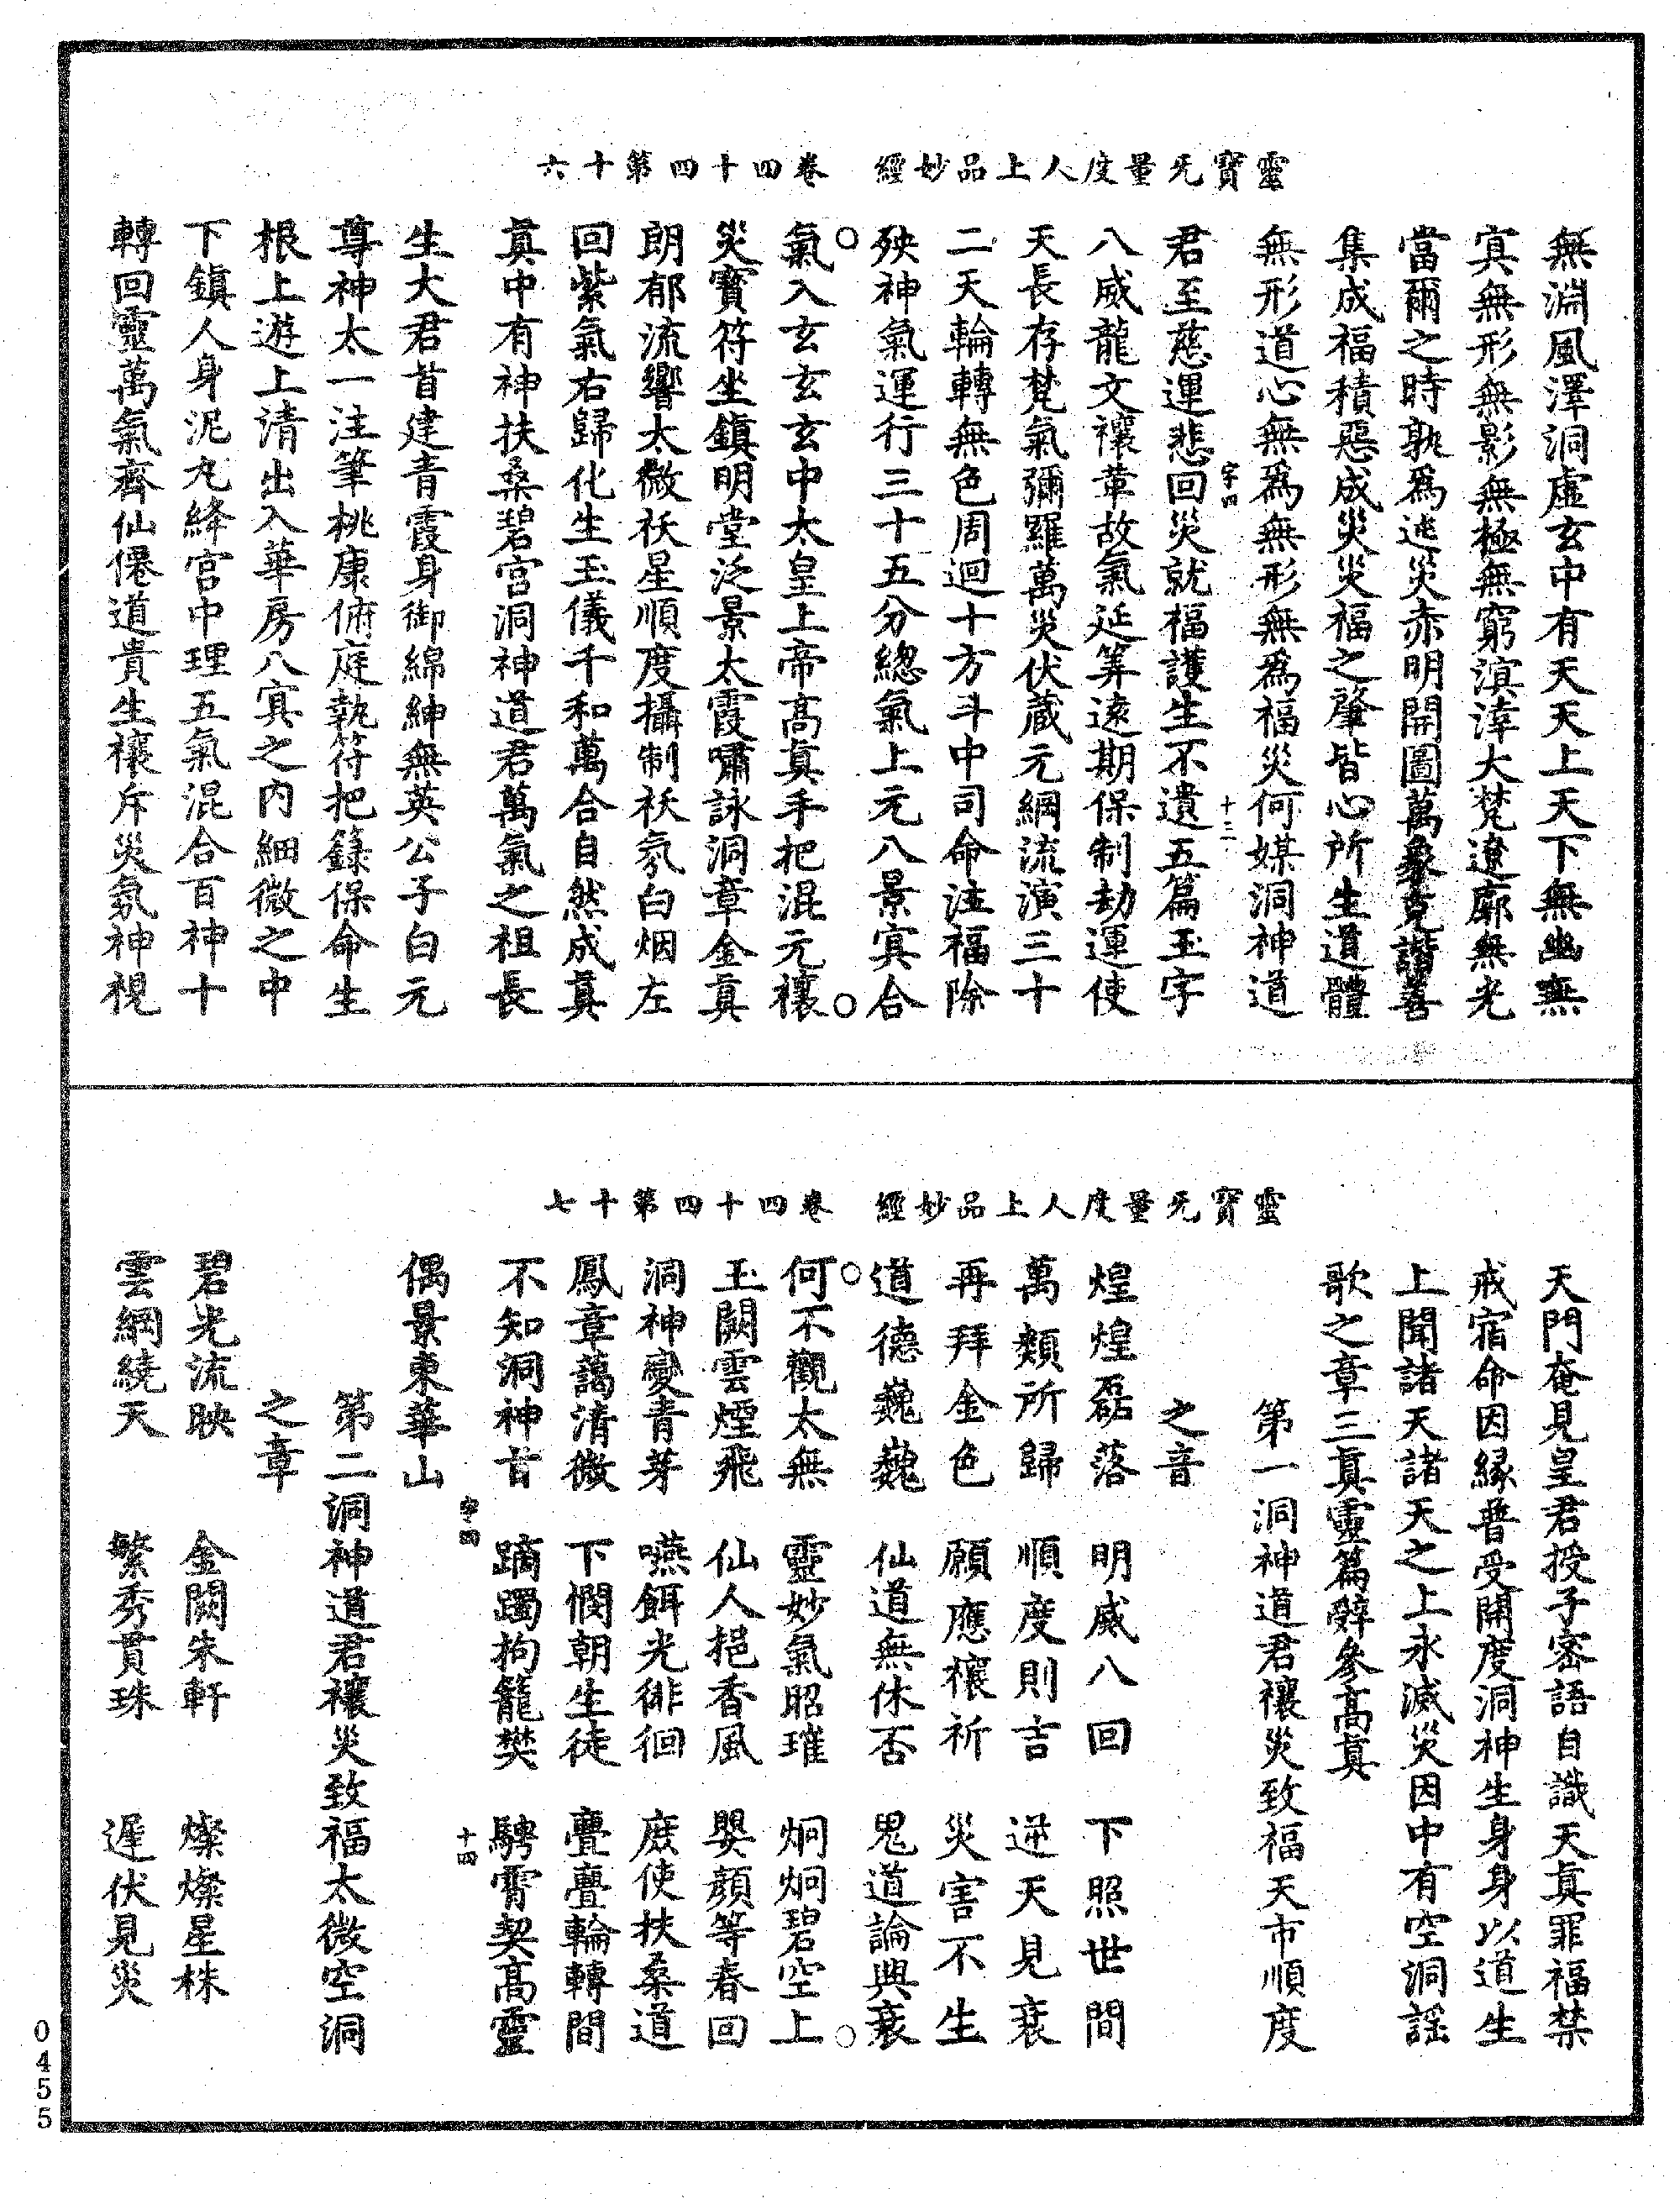 靈寶无量度人上品妙經　卷四十四第十六
無淵風澤洞虛玄中有天天上天下無幽無
㝠無形無影無極無窮溟涬大梵遼廓無光
當爾之時孰爲逃災赤明開圖萬象克諧善
集成福積惡成災災福之肇皆心所生道體
無形道心無爲無形無爲福災何媒洞神道
字四　十三
君至慈運悲回災就福護生不遺五篇玉字
八威龍文禳葦故氣延筭遠期保制劫運使
天長存梵氣彌羅萬災伏藏元綱流演三十
二天輪轉無色周迴十方斗中司命注福除
殃神氣運行三十五分總氣上元八景㝠合
氣入玄玄玄中太皇上帝高真手把混元禳
災寶符坐鎮明堂泛景太霞嘯詠洞章金真
朗郁流響太微祅星順度攝制祅氛白烟左
回紫氣右歸化生玉儀千和萬合自然成真
真中有神扶桑碧宮洞神道君萬氣之祖長
生大君首建青霞身御綿紳無英公子白元
尊神太一注筆桃康俯庭執符把籙保命生
根上遊上清出入華房八㝠之内細微之中
下鎮人身泥丸絳宮中理五氣混合百神十
轉回靈萬氣齊仙僊道貴生禳斥災氛神視
靈寶无量度人上品妙經　卷四十四第十七
天門奄見皇君授子密語自識天真罪福禁
戒宿命因緣普受開度洞神生身身以道生
上聞諸天諸天之上永滅災因中有空洞謡
歌之章三真靈篇辭參高真
第一洞神道君禳災致福天市順度
之音
煌煌磊落　明威八回　下照世間
萬類所歸　順度則吉　逆天見衰
再拜金色　願應禳祈　災害不生
道德巍巍　仙道無休否　鬼道論興衰
何不觀太無　靈妙氣昭璀　炯炯碧空上
玉闕雲煙飛　仙人挹香風　嬰顏等春回
洞神變青芽　嚥餌光徘徊　庶使扶桑道
鳳章藹清微　下憫朝生徒　亹亹輪轉間
不知洞神旨　蹢躅拘籠樊　騁霄契高靈
字四　十四
偶景東華山
第二洞神道君禳災致福太微空洞
之章
碧光流映　金闕朱軒　燦燦星株
雲綱繞天　繁秀貫珠　遲伏見災
0455